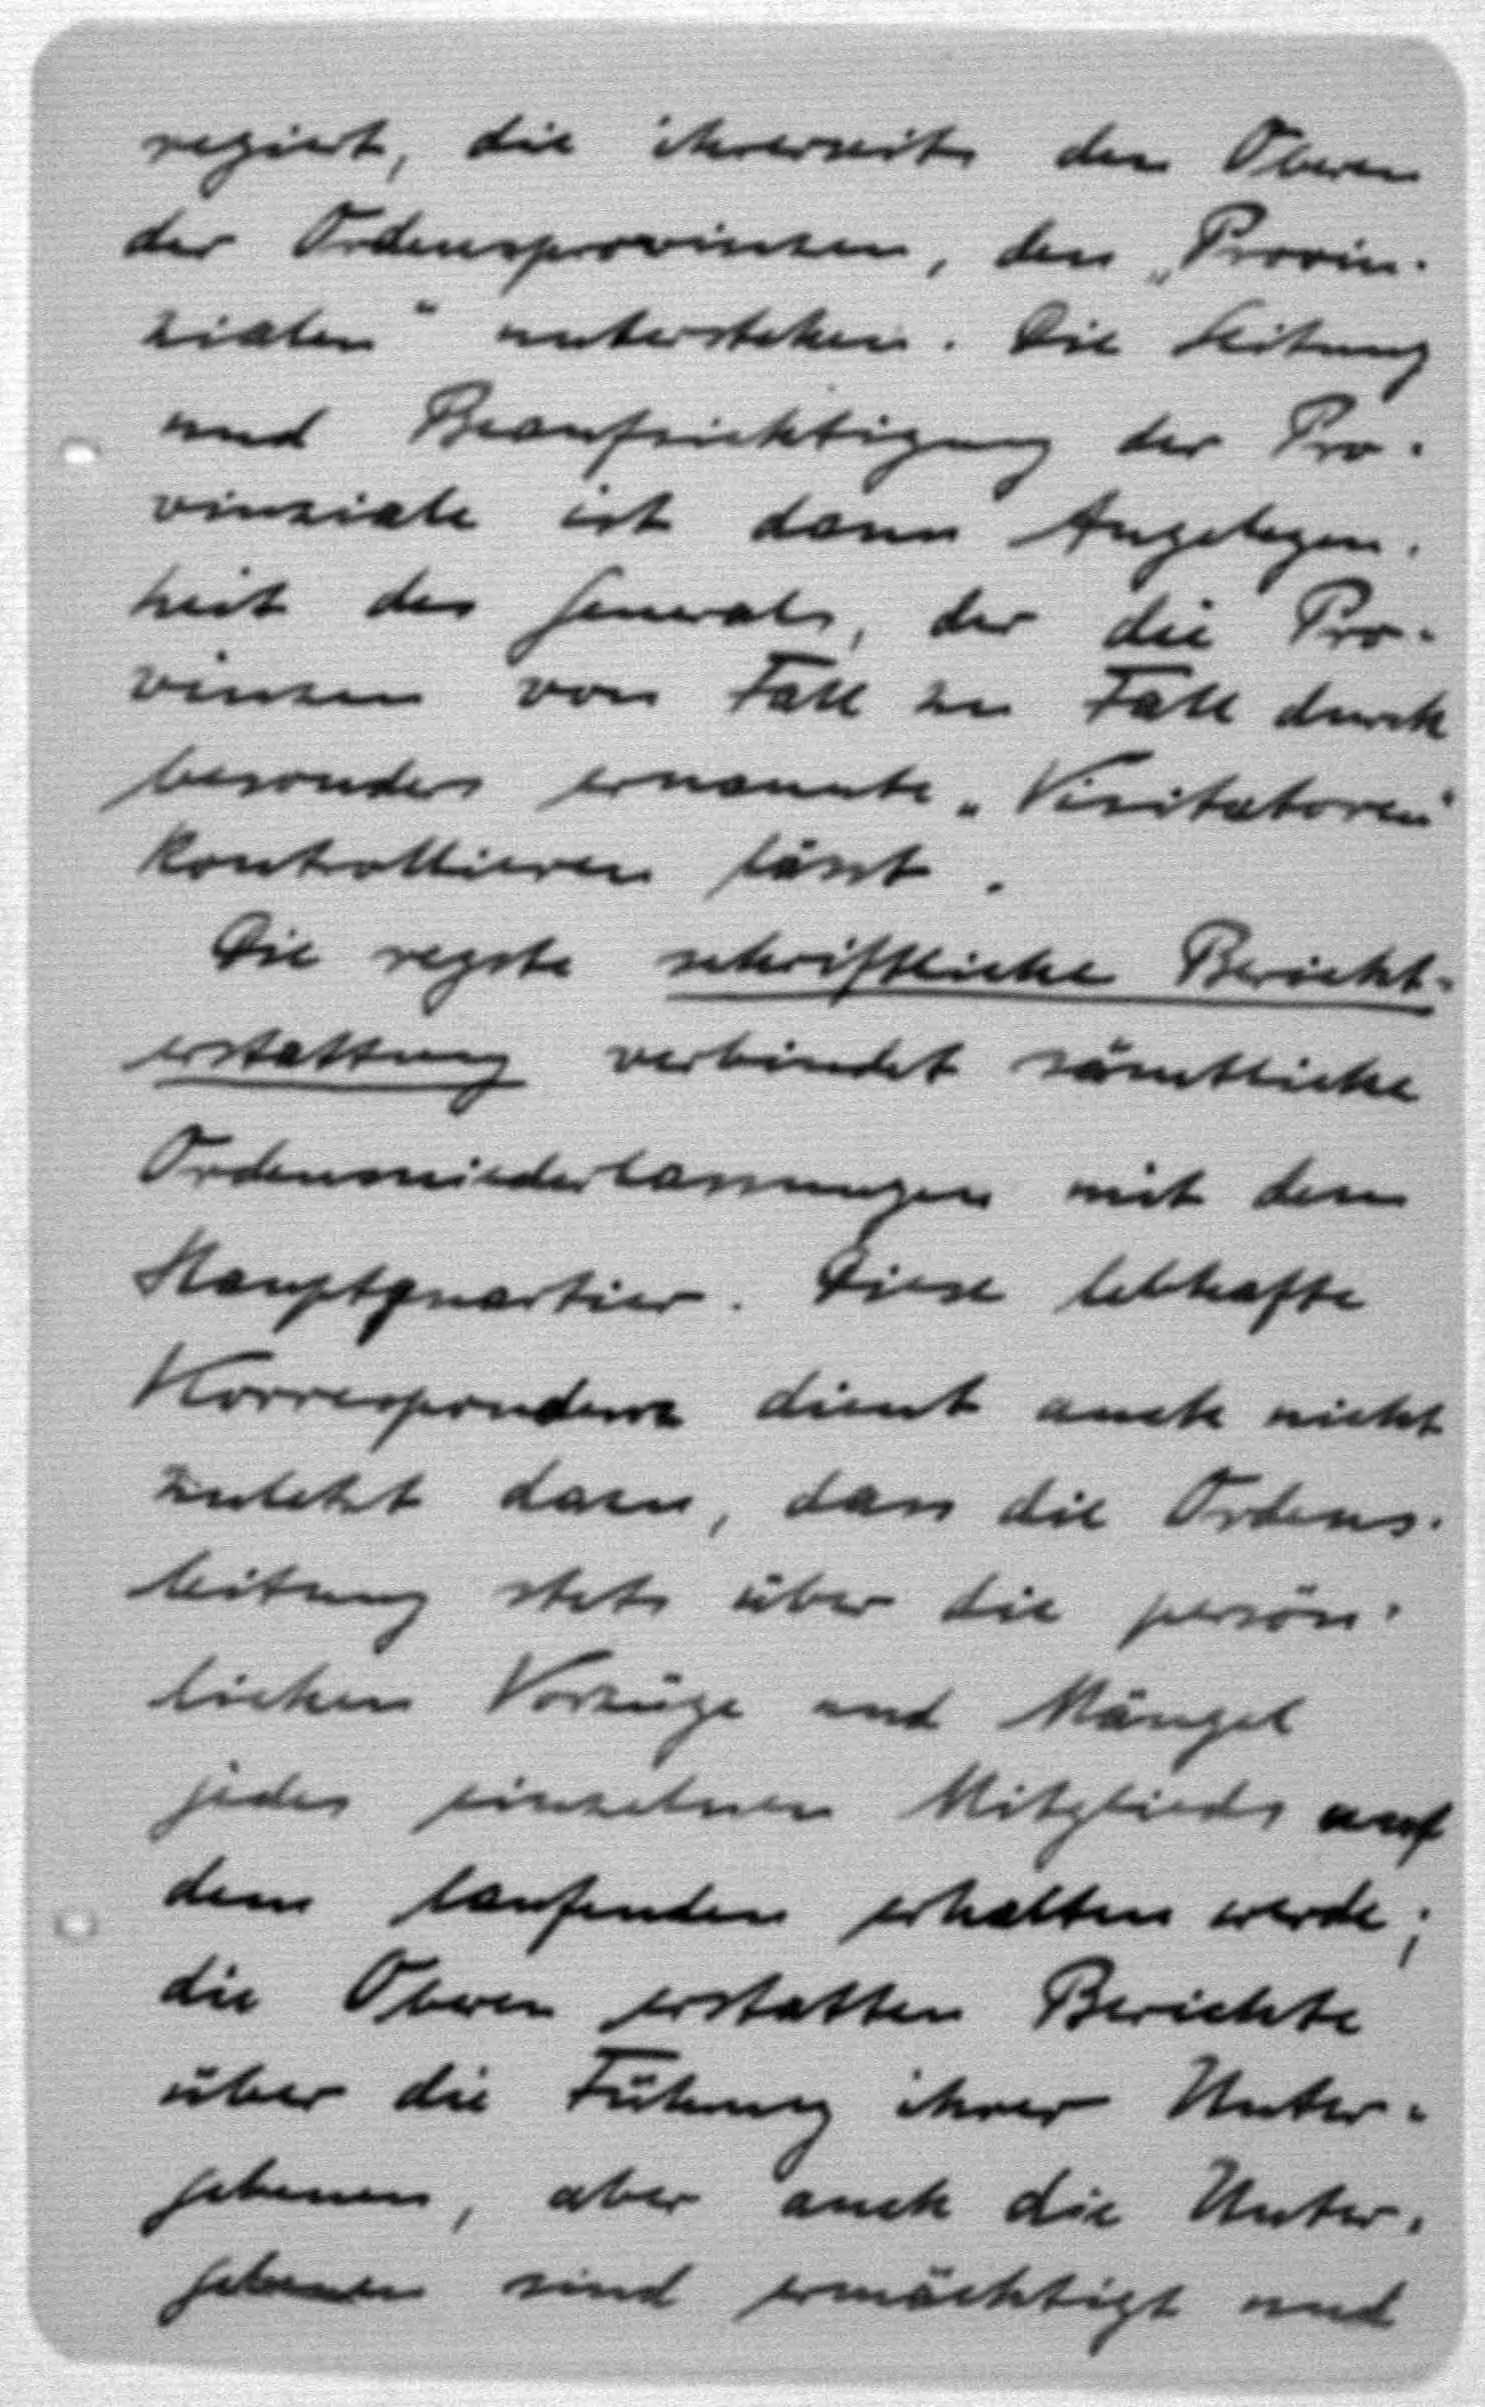 regiert, die ihrerseits den Oberen
der Ordensprovinzen, den „Provin-
zialen" unterstehen. Die Leitung
und Beaufsichtigung der Pro-
vinziale ist dann Angelegen-
heit des Generals, der die Pro-
vinzen von Fall zu Fall durch
besonders ernannte „Visitatoren"
kontrollieren lässt.
Die regste schriftliche Bericht-
erstattung verbindet sämtliche
Ordensniederlassungen mit dem
Hauptquartier. Diese lebhafte
Korrespondenz dient auch nicht
zuletzt dazu, dass die Ordens-
leitung stets über die persön-
lichen Vorzüge und Mängel
jedes einzelnen Mitglieds auf
dem laufenden erhalten werde;
die Oberen erstatten Berichte
über die Führung ihrer Unter-
gebenen, aber auch die Unter-
gebenen sind ermächtigt und